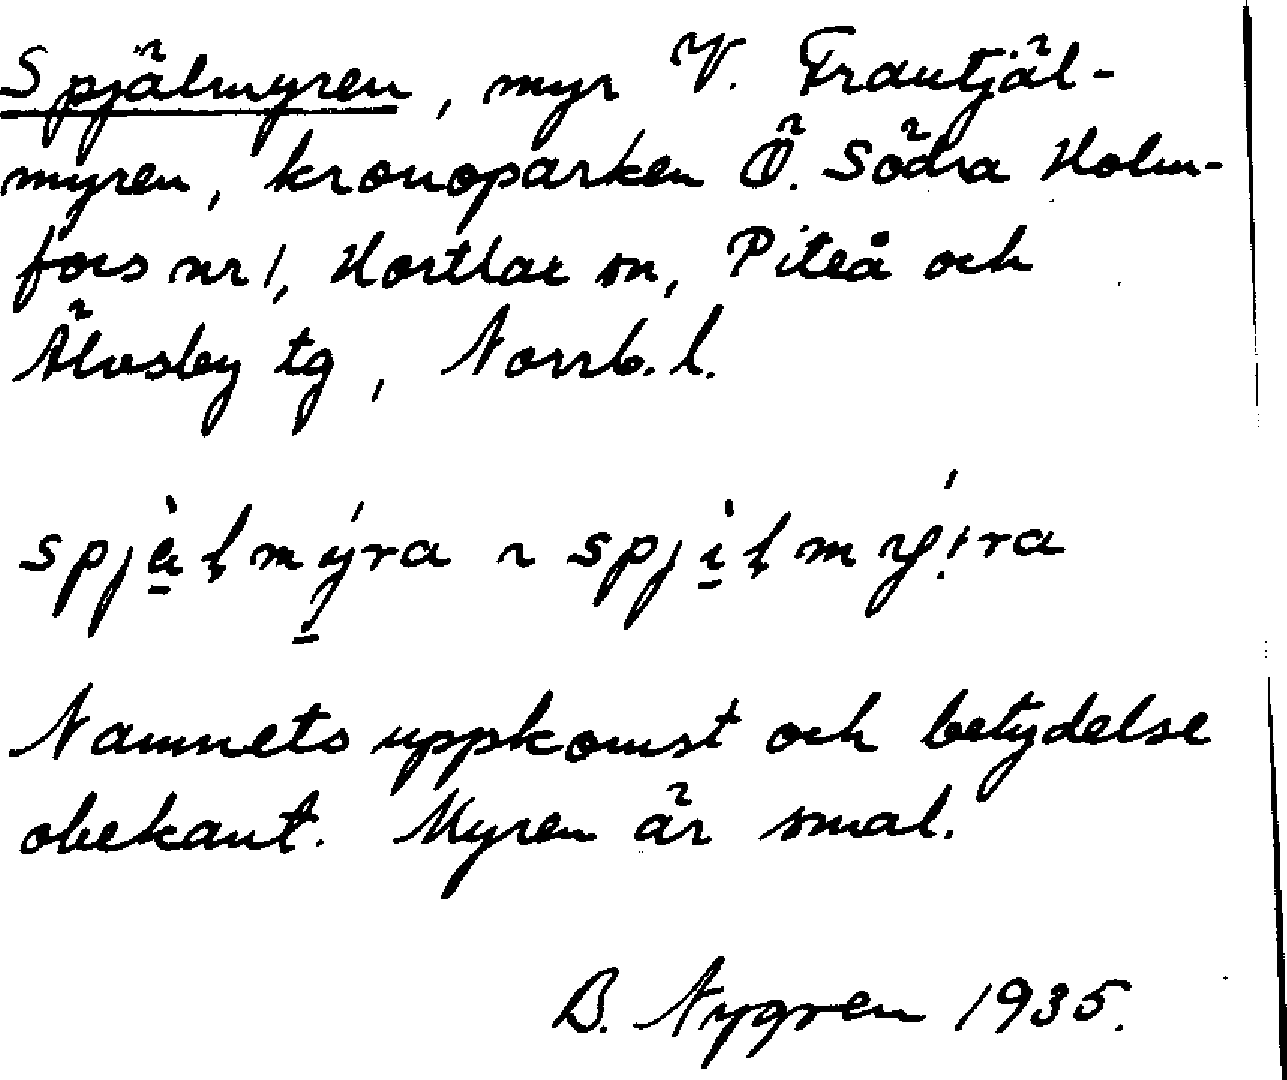 Spjälmyren, myr V. Trautjäl-
myren, kronoparken Ö. Södra Holm-
fors nr 1, Hortlax sn, Piteå och
Älvsby tg, Norrb. l.
spjàlmýra ~ spjìlmý!ra
Namnets uppkomst och betydelse
obekant. Myren är smal.
B. Nygren 1935.